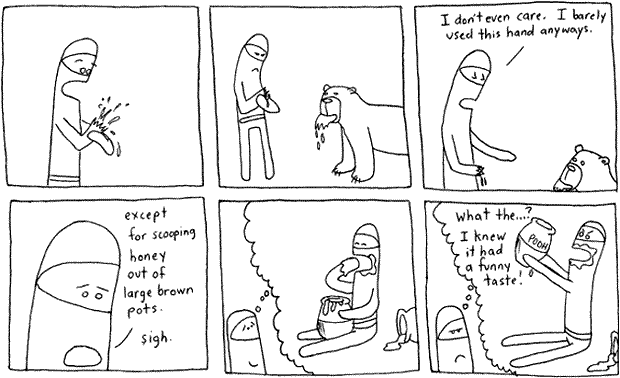 I don't even care. I barely
used this hand anyways.
except
for scooping
honey
out of
large brown
pots.
sigh.
What the...?
I knew
it had
a funny
taste!
POOH